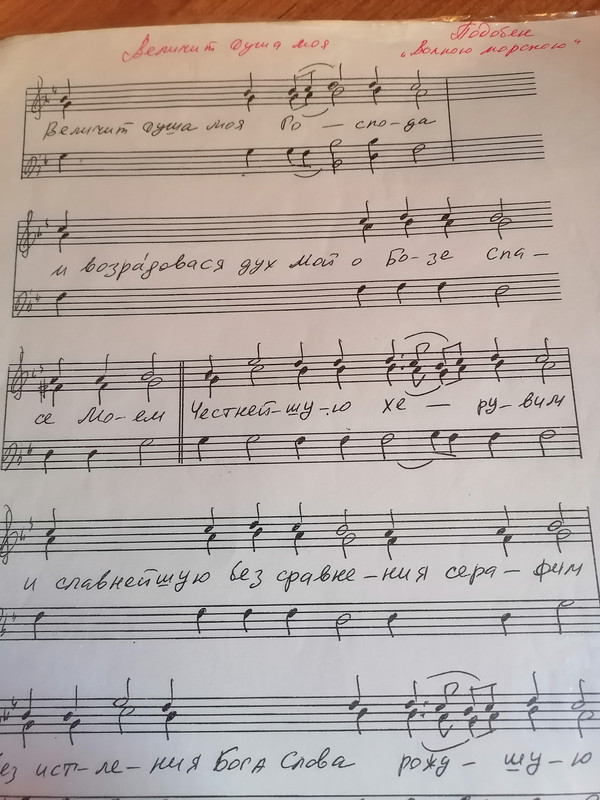 Величит душа моя
Подобен
"Волною морскою"
Величит душа моя Го — спо-да
и возра́довася дух мой о Бо-зе спа-
се Мо-ем Честней-шу-ю хе — ру-вим
и славнейшую без сравне-ния сера-фим
без истле-ния Бога Слова рожд-шу-ю